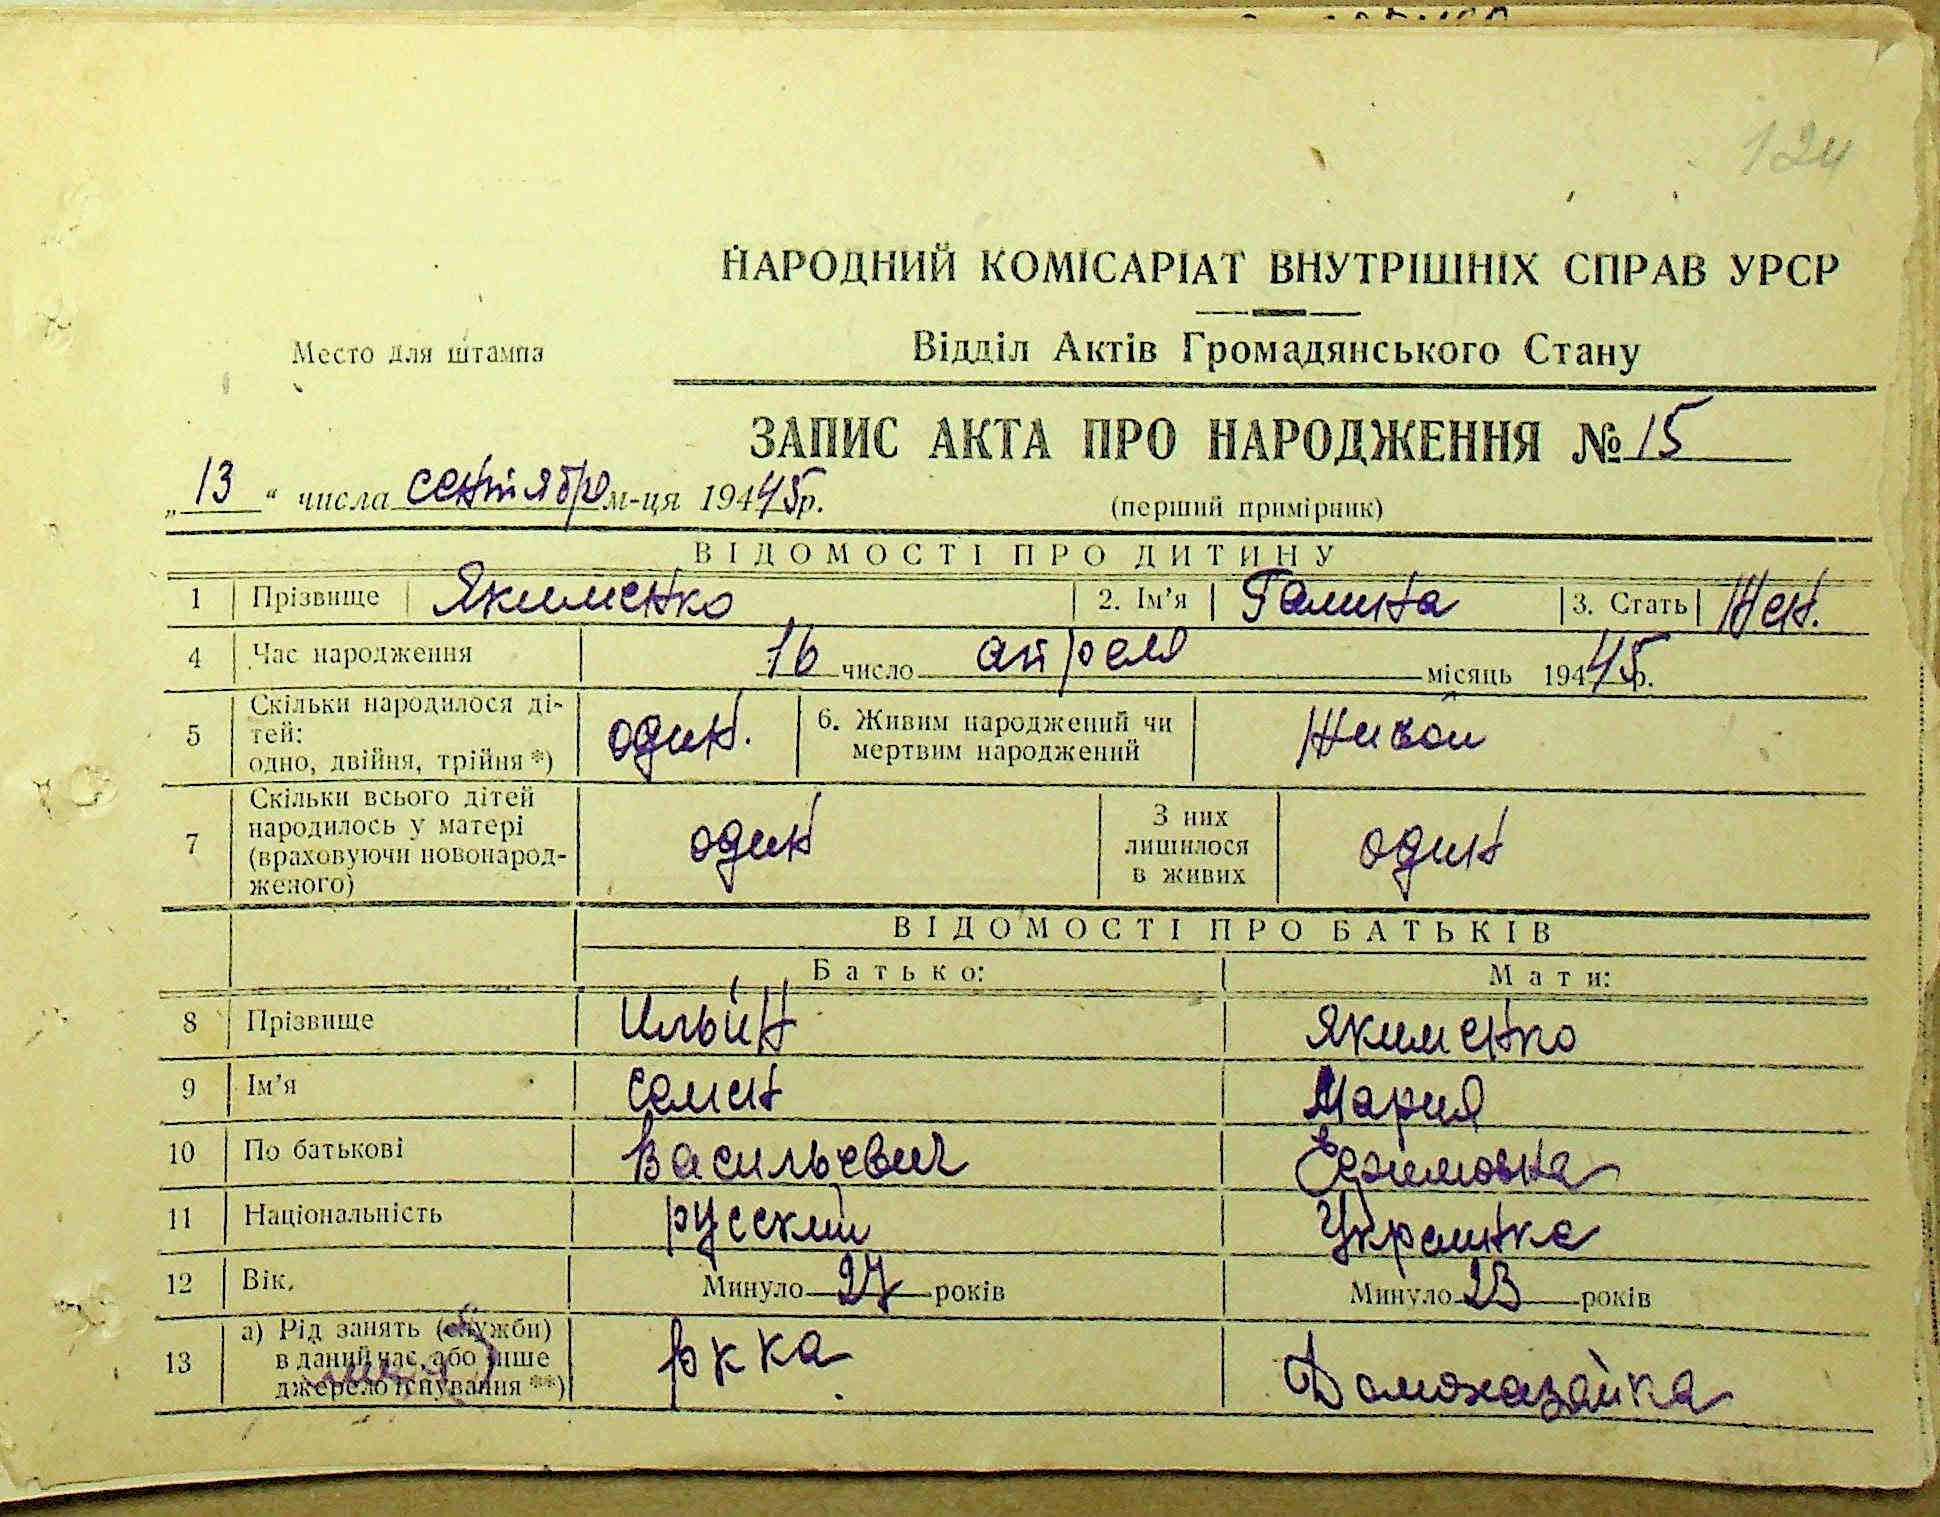 124
НАРОДНИЙ КОМІСАРІАТ ВНУТРІШНІХ СПРАВ УРСР
Место для штампа
Відділ Актів Громадянського Стану
ЗАПИС АКТА ПРО НАРОДЖЕННЯ № 15
„13“ числа сентябр м-ця 194 45 р.
(перший примірник)
ВІДОМОСТІ ПРО ДИТИНУ
1 Прізвище Якименко 2. Ім’я Галина 3. Стать Жен.
4 Час народження 16 число апреля місяць 194 45 р.
5 Скільки народилося ді-
тей:
одно, двійня, трійня *) один. 6. Живим народжений чи
мертвим народжений Живой
7 Скільки всього дітей
народилось у матері
(враховуючи новонарод-
женого) один З них
лишилося
в живих один
ВІДОМОСТІ ПРО БАТЬКІВ
Батько: Мати:
8 Прізвище Ильин Якименко
9 Ім’я Семен Мария
10 По батькові Васильевич Ефимовна
11 Національність русский Украинка
12 Вік. Минуло 27 років Минуло 23 років
13 а) Рід занять (служби)
в даний час, або інше
джерело існування **) Ркка Домохазайка